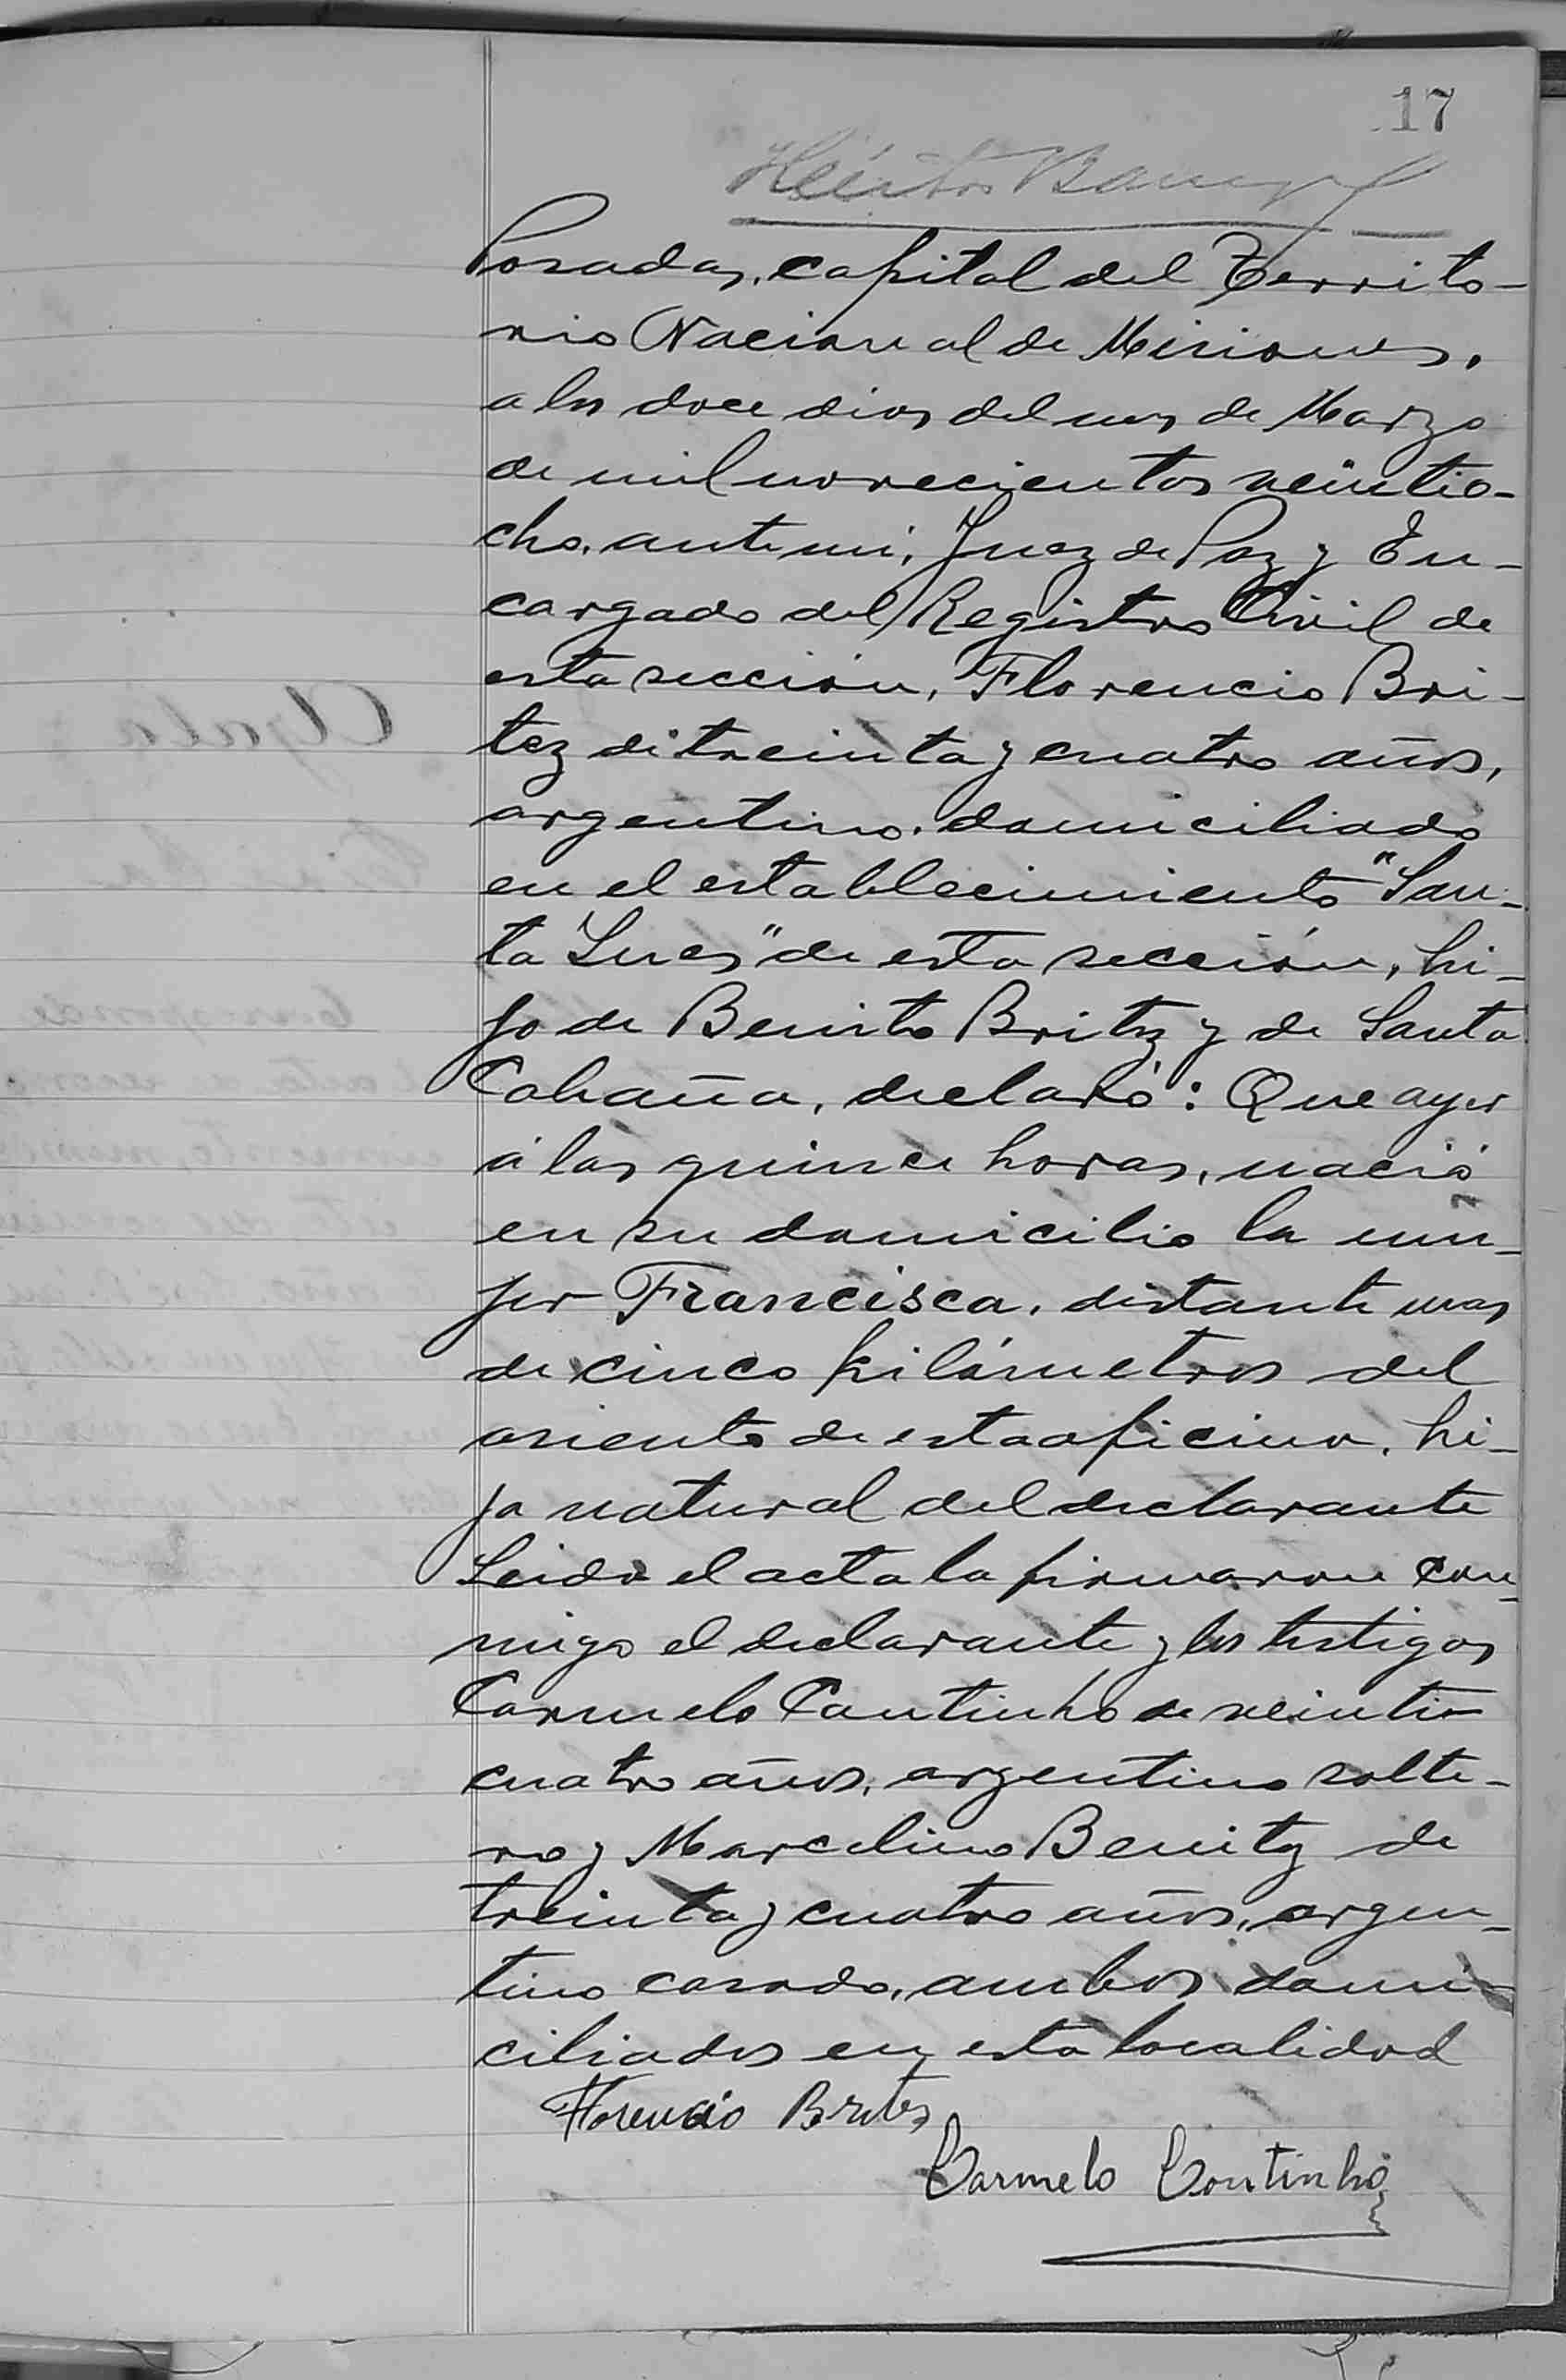 17
Héctor Barreyro
Posadas, capital del Territo-
rio Nacional de Misiones,
a los doce dias del mes de Marzo
de mil novecientos veintio-
cho, ante mi, Juez de Paz y En-
cargado del Registro Civil de
esta sección, Florencio Bri-
tez de treinta y cuatro años,
argentino, domiciliado
en el establecimiento "San-
ta Ines" de esta sección, hi-
jo de Benito Britez y de Santa
Cabaña, declaró: Que ayer
á las quince horas, nació
en su domicilio la mu-
jer Francisca, distante mas
de cinco kilómetros del
asiento de esta oficina, hi-
ja natural del declarante
Leida el acta la firmaron con-
migo el declarante y los testigos
Carmelo Coutinho de veinti-
cuatro años, argentino solte-
ro y Marcelino Benitez de
treinta y cuatro años, argen-
tino casado, ambos domi-
ciliados en esta localidad
Florencio Brites
Carmelo Coutinho